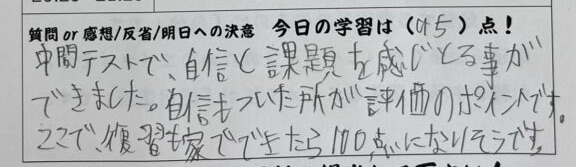 質問 or 感想/反省/明日への決意 今日の学習は(95)点!
中間テストで、自信と課題を感じとる事が
できました。自信もついた所が評価のポイントです。
ここで、復習も家でできたら100点になりそうです。